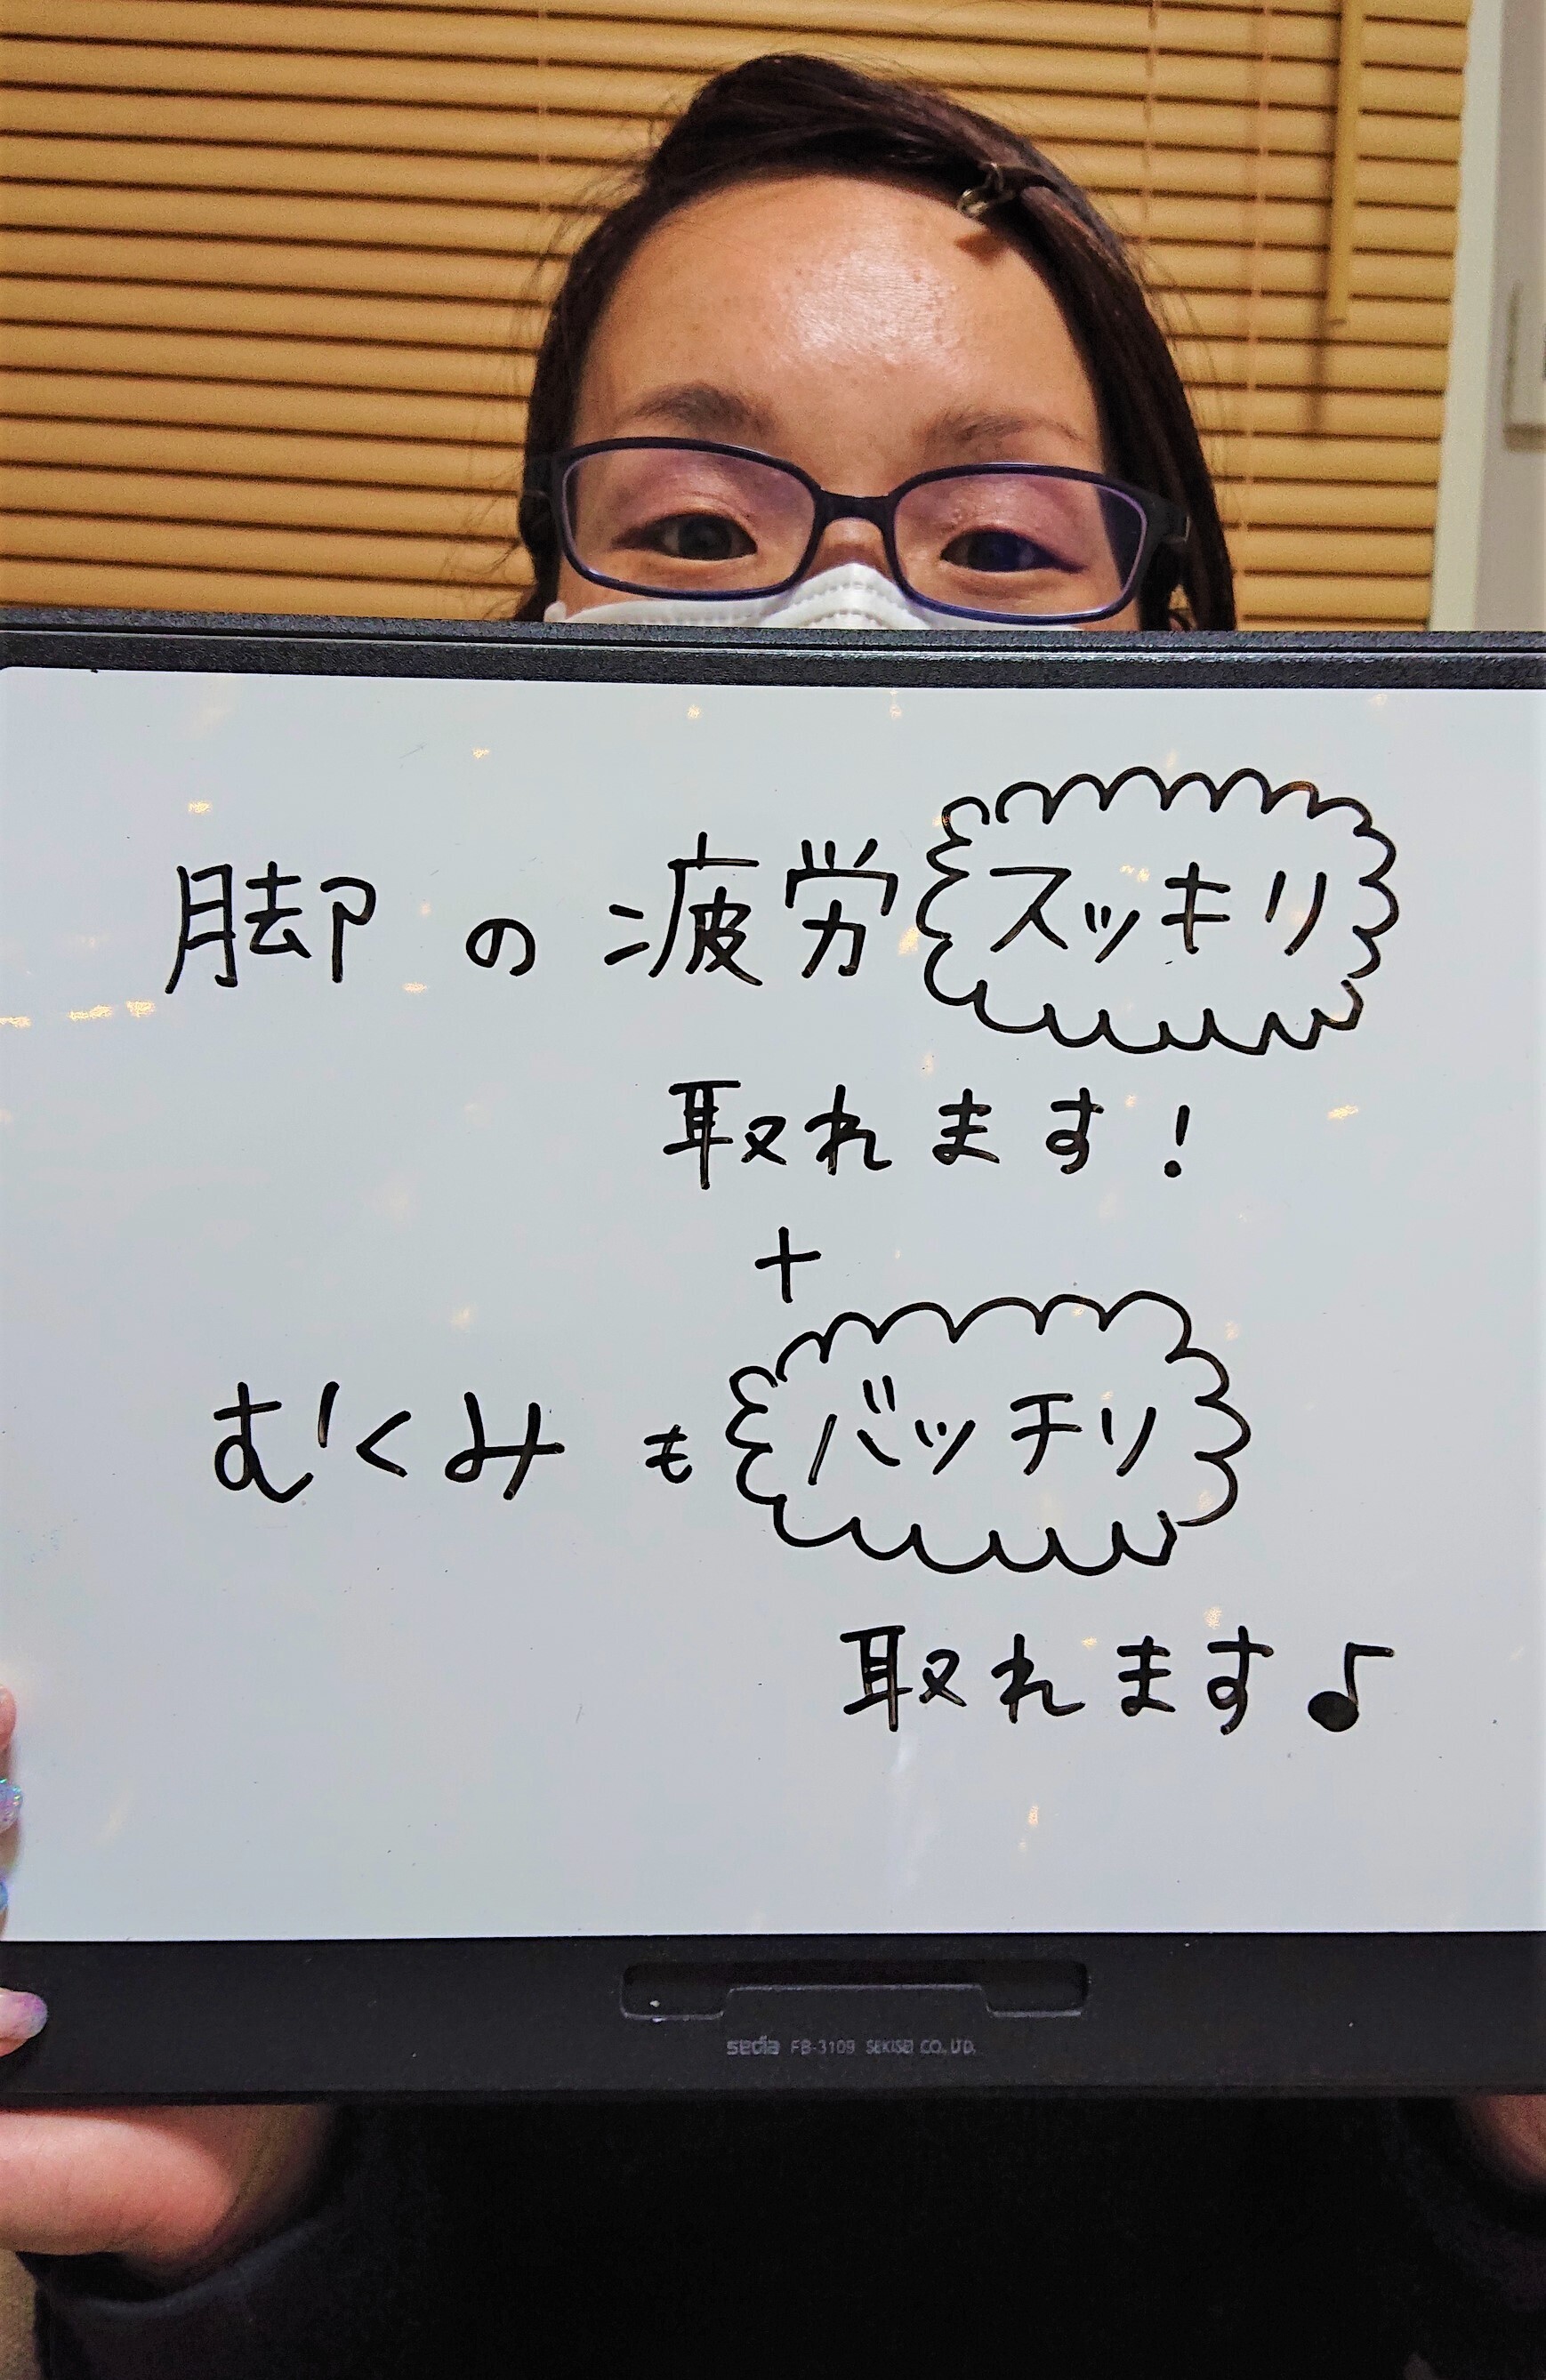 脚の疲労スッキリ
取れます!
+
むくみもバッチリ
取れます♪
sedia FB-3109 SEKISEI CO., LTD.